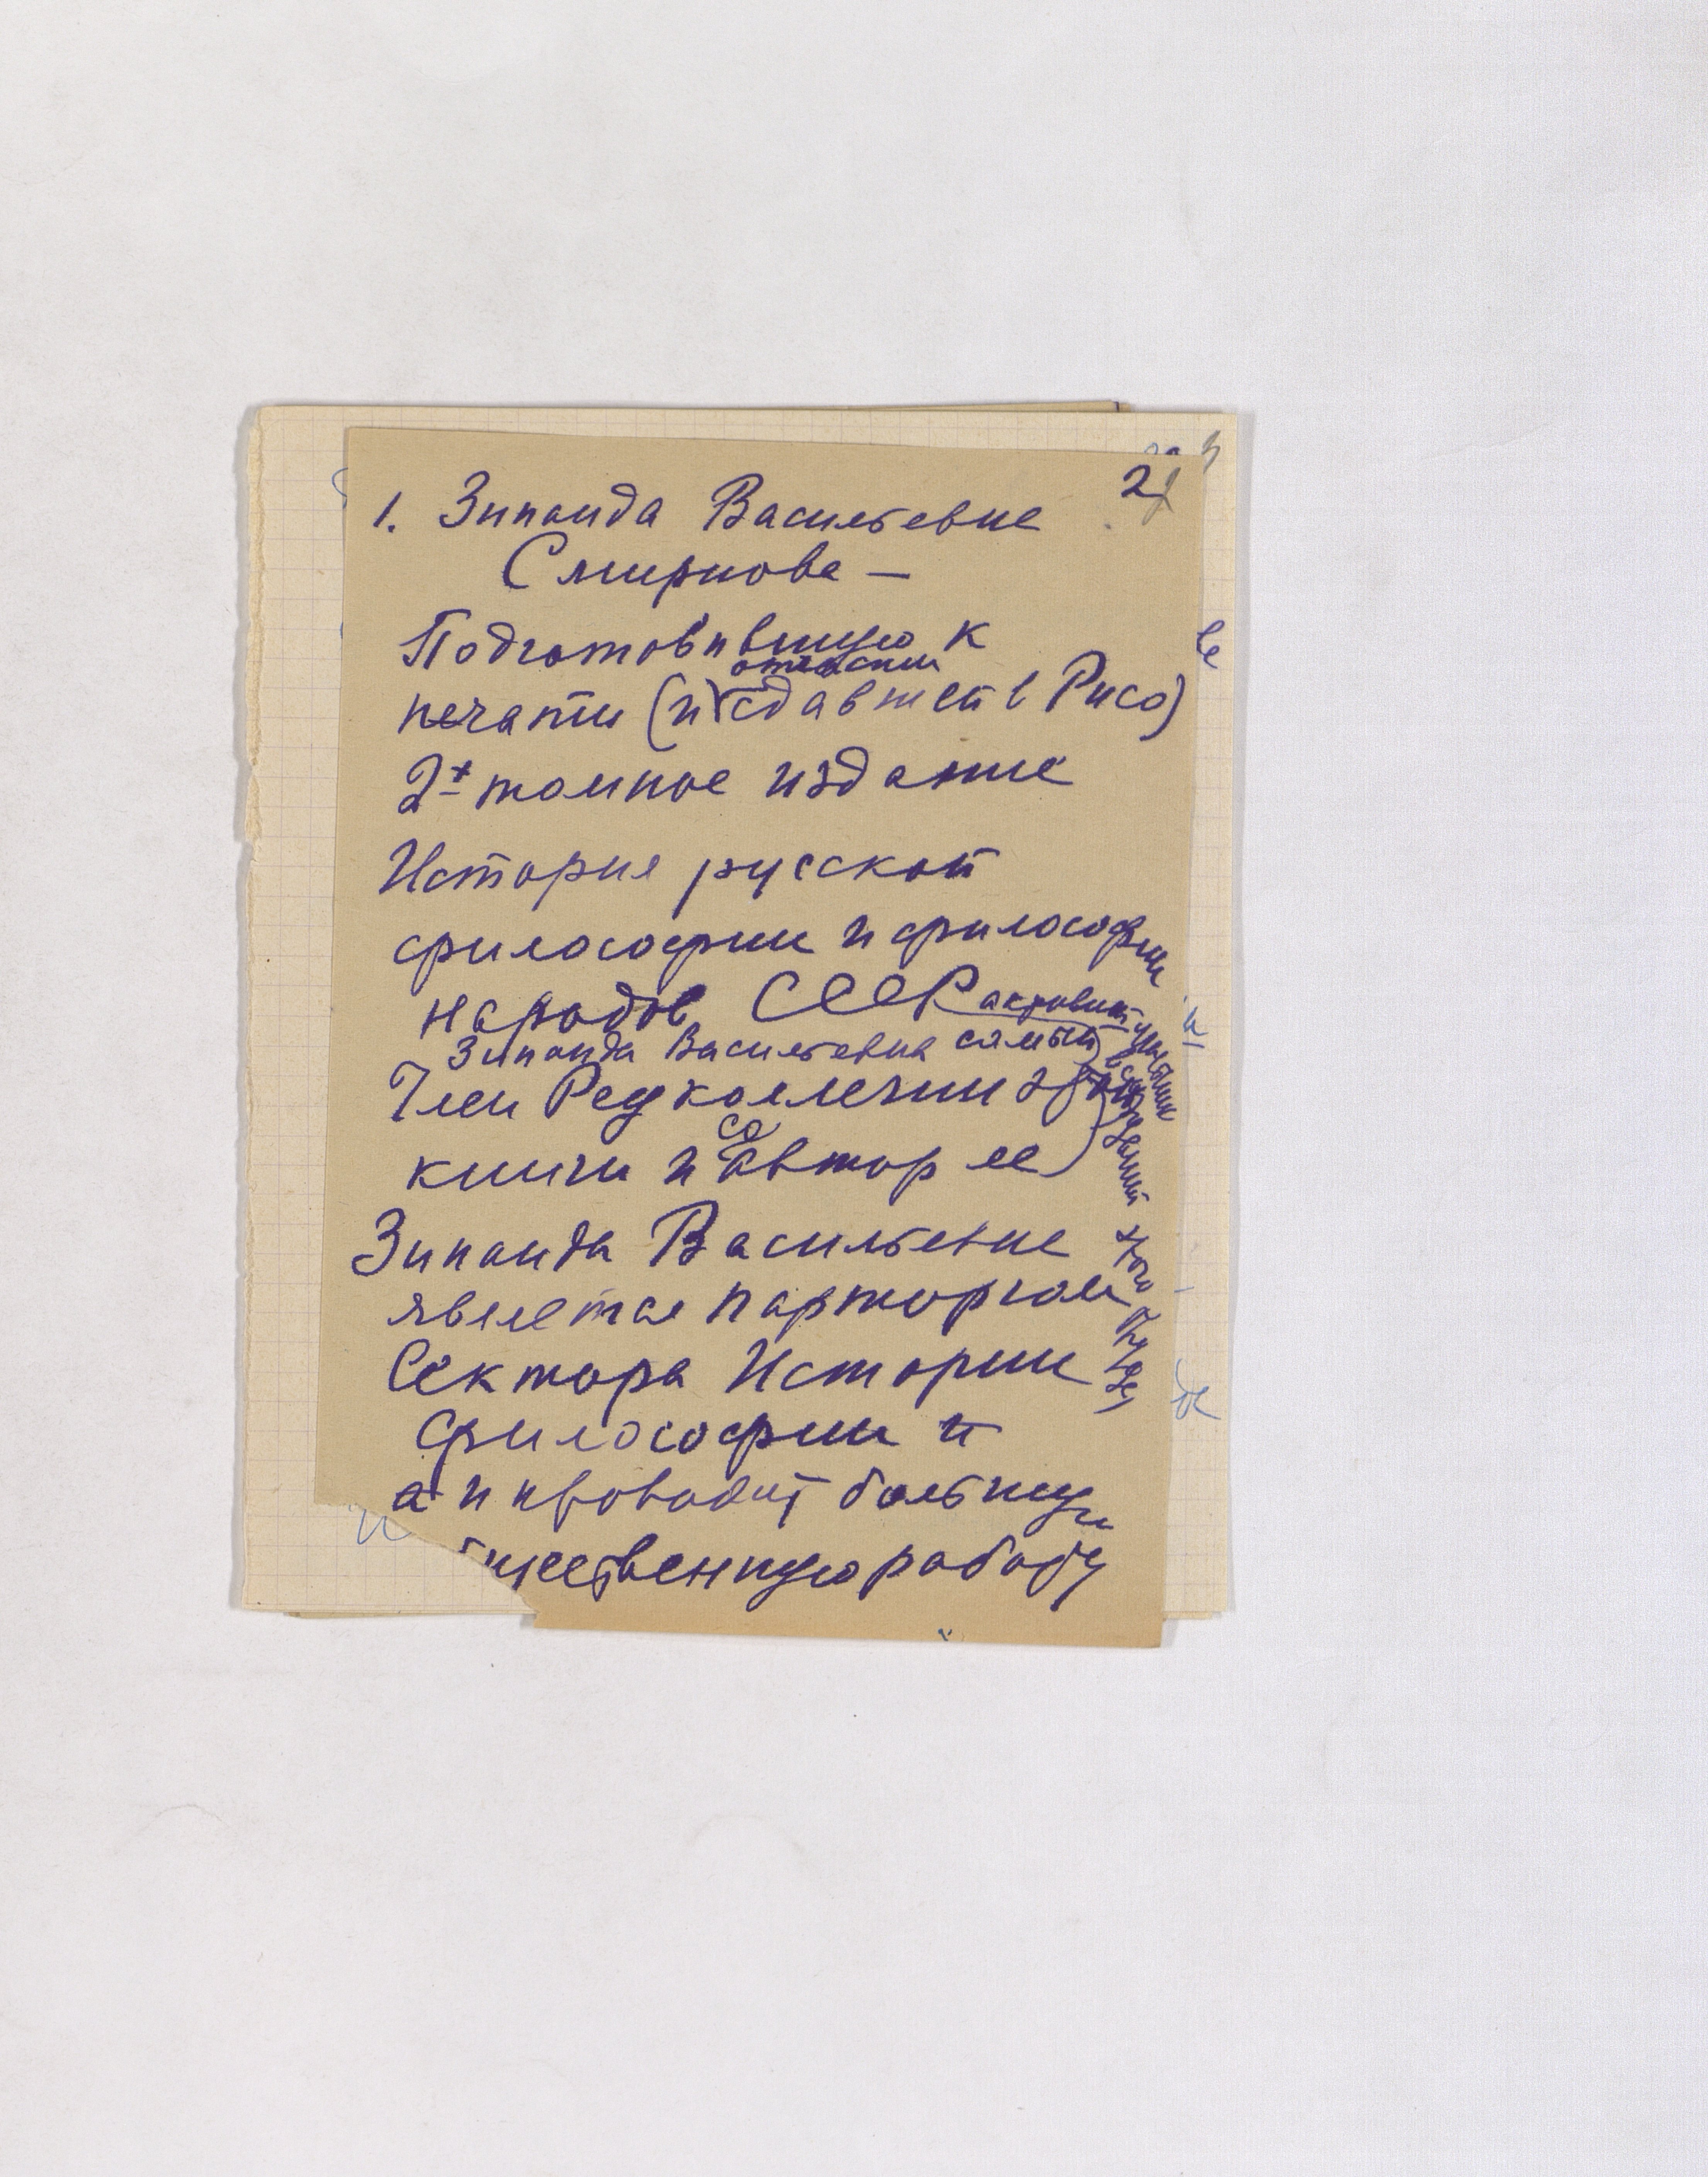 2
1. Зинаида Васильевна
Смирнова —
Подготовившую к
печати (и сдавшей в Рисо)
2х томное издание
История русской
философии и философии
народов СССР
Зинаида Васильевна самый активный участник
обсуждений этого
Член Редколлегии этой
книги и соавтор ее
Зинаида Васильевна
является парторгом
Сектора Истории
философии и
а и проводит большую
щественную работу